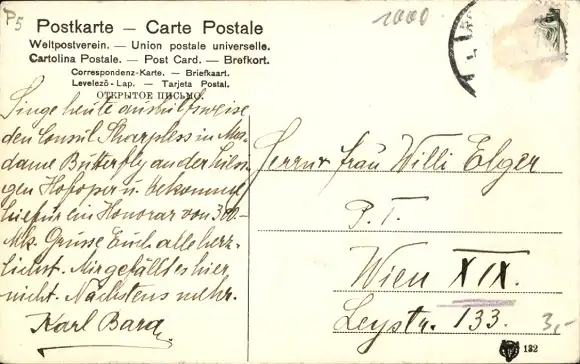 P5
1000
Postkarte — Carte Postale
Weltpostverein. — Union postale universelle.
Cartolina Postale. — Post Card. — Brefkort.
Correspondenz-Karte. — Briefkaart.
Levelező-Lap. — Tarjeta Postal.
ОТКРЫТОЕ ПИСЬМО
Singe heute aushilfsweise
den Consul Sharpless in Ma-
dame Butterfly an der hiesi-
gen Hofoper u. bekomme
hiefür ein Honorar von 300
Mk. Grüsse Euch alle herz-
lichst. Mir gefällt es hier
nicht. Nächstens mehr.
Karl Bara
Herrn u Frau Willi Elger
P. T.
Wien XIX.
Leystr. 133.
3,-
132